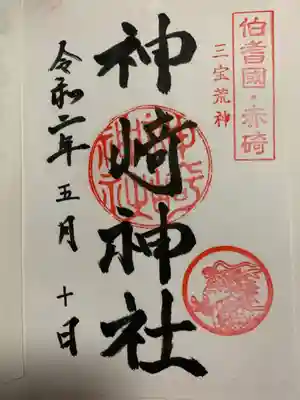 伯耆國・赤碕
三宝荒神
神﨑神社
令和二年五月十日